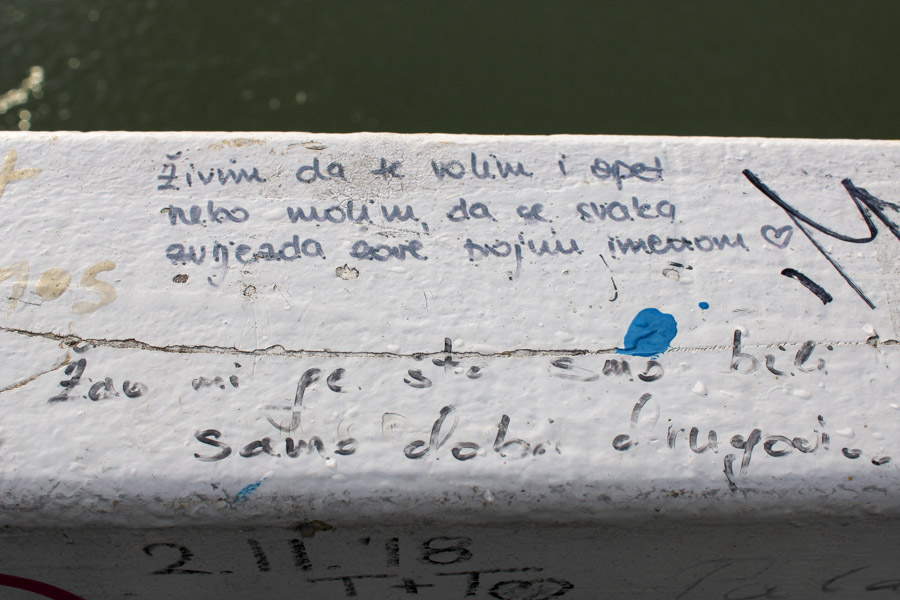 Živim da te volim i opet
neko molim, da se svaka
zvijezda zove tvojim imenom ♡
mos
M
Žao mi je što smo bili
samo dobri drugovi...
2.11.'18
T+T♡